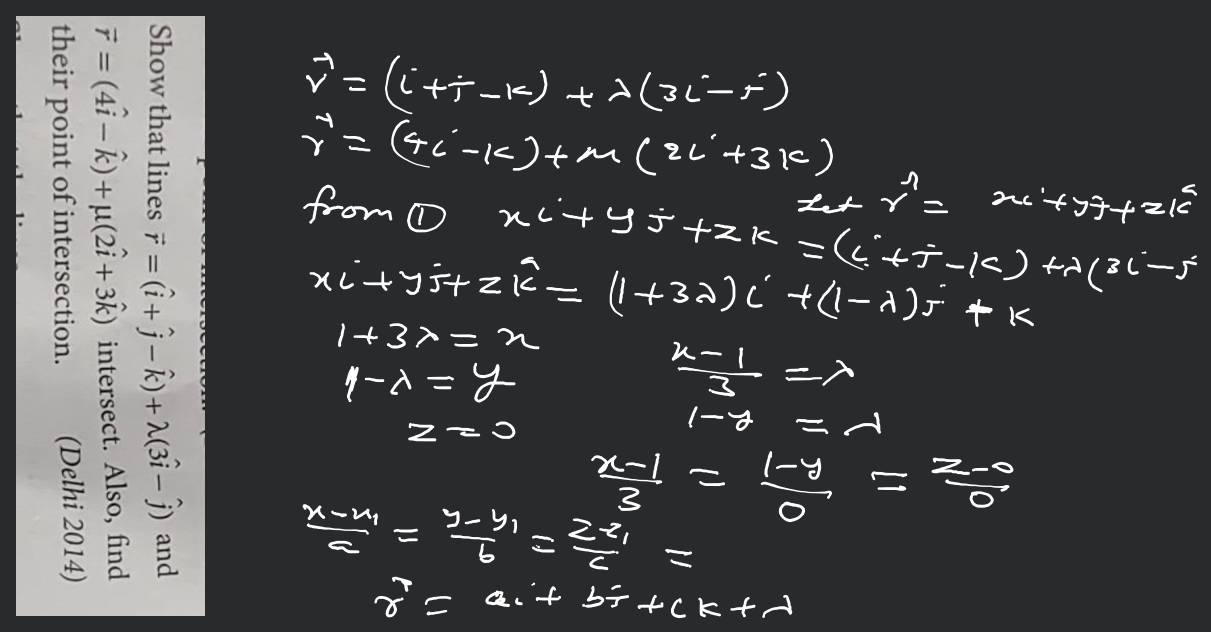 Show that lines r⃗ = (î + ĵ − k̂) + λ(3î − ĵ) and
r⃗ = (4î − k̂) + μ(2î + 3k̂) intersect. Also, find
their point of intersection. (Delhi 2014)
r⃗ = (i + j − k) + λ(3i − j)
r⃗ = (4i − k) + μ(2i + 3k)
Let r⃗ = xi + yj + zk̂
from ① xi + yj + zk = (i + j − k) + λ(3i − j
xi + yj + zk̂ = (1+3λ)i + (1−λ)j + k
1+3λ = x
x−1/3 = λ
1−λ = y
1−y = λ
z = 0
x−1/3 = 1−y/0 = z−0/0
x−x₁/a = y−y₁/b = z z₁/c =
r⃗ = ai + bj + ck + λ